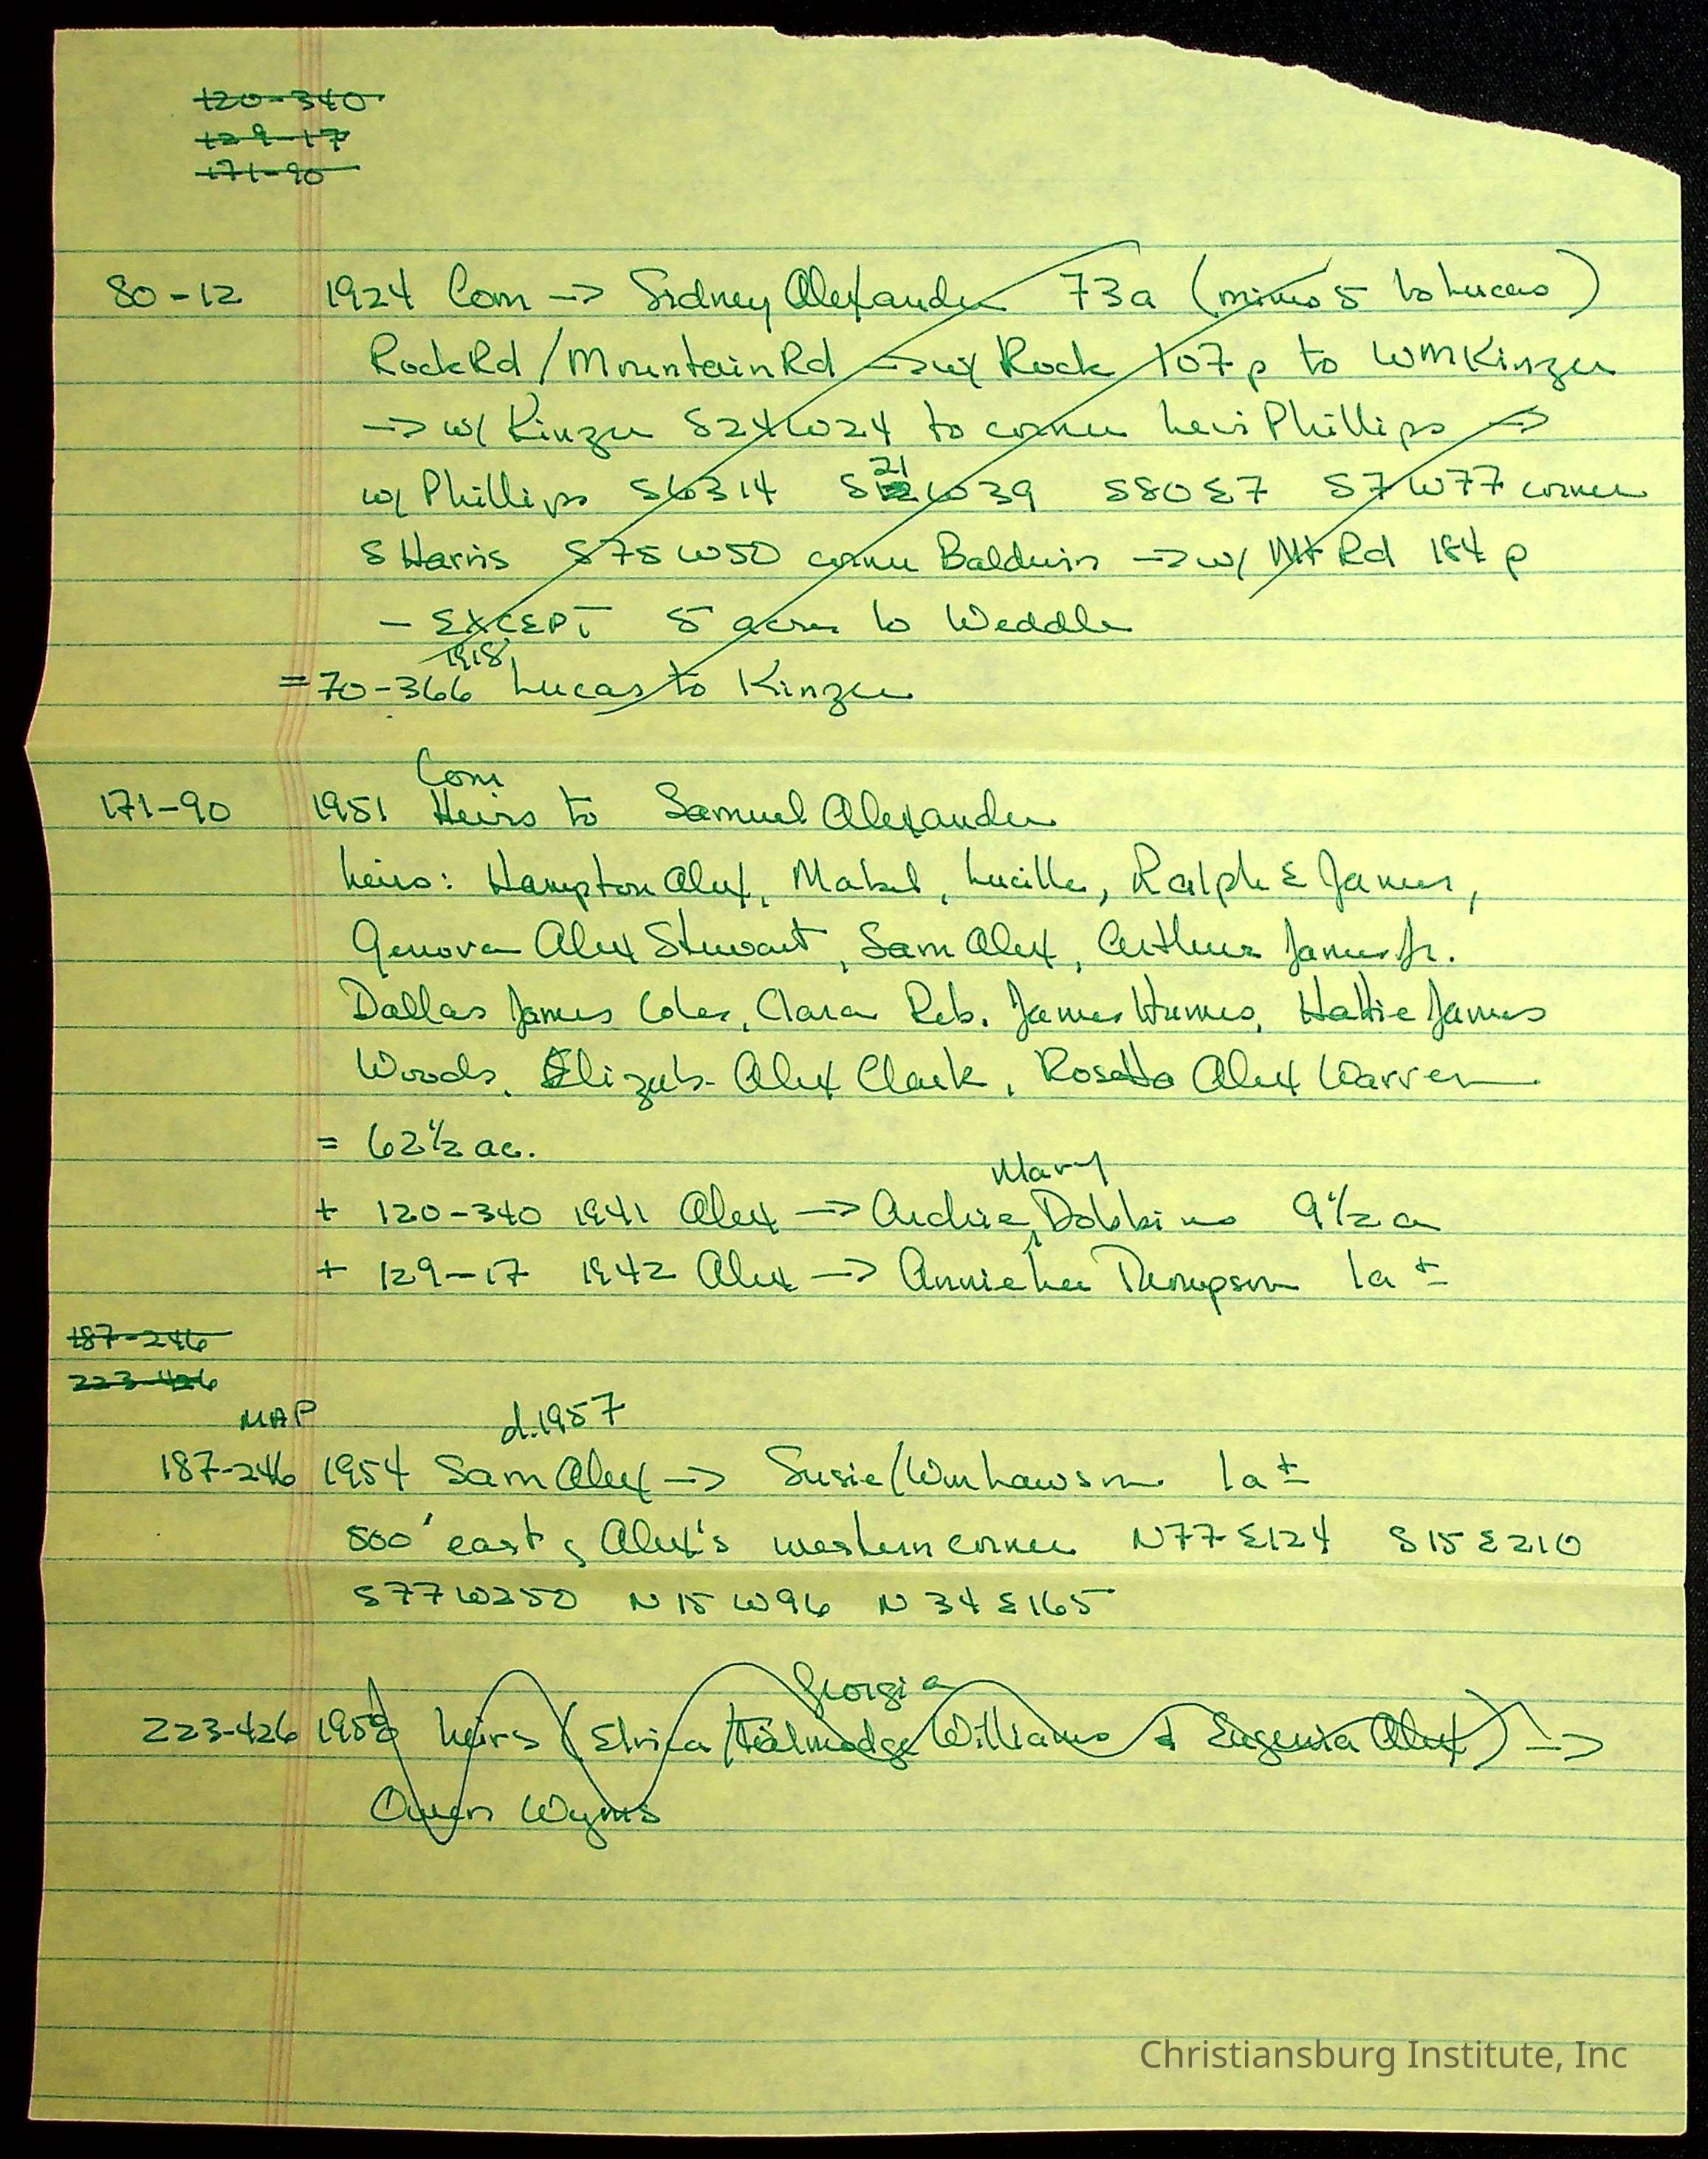 120-340
129-17
171-90
80-12 1924 Com → Sidney Alexander 73a (minus 5 to Lucas)
Rock Rd / Mountain Rd → w/ Rock 107 p to WM Kinzer
→ w/ Kinzer S24W24 to corner heirs Phillips →
w/ Phillips S6314 S21W39 S80E7 S7W77 corner
S Harris S75W50 corner Baldwin → w/ Mt Rd 184 p
- EXCEPT 5 acres to Weddle
1918
= 70-366 Lucas to Kinzer
Com
171-90 1951 Heirs to Samuel Alexander
heirs: Hampton Alex, Mabel, Lucille, Ralph & James,
Genova Alex Stewart, Sam Alex, Arthur James Jr.
Dallas James Coles, Clara Reb. James Humes, Hattie James
Woods, Elizab. Alex Clark, Rosetta Alex Warren
= 62½ ac.
Mary
+ 120-340 1941 Alex → Archie Dobbins 9½ a
+ 129-17 1942 Alex → Annie Lee Thompson 1a ±
187-246
223-426
MAP d.1957
187-246 1954 Sam Alex → Susie/Wm Lawson 1a ±
500' east of Alex's western corner N77E124 S15E210
S77W250 N15W96 N34E165
Georgia
223-426 1958 heirs (Elrica Talmadge Williams & Eugenia Alex) →
Owen Wyms
Christiansburg Institute, Inc